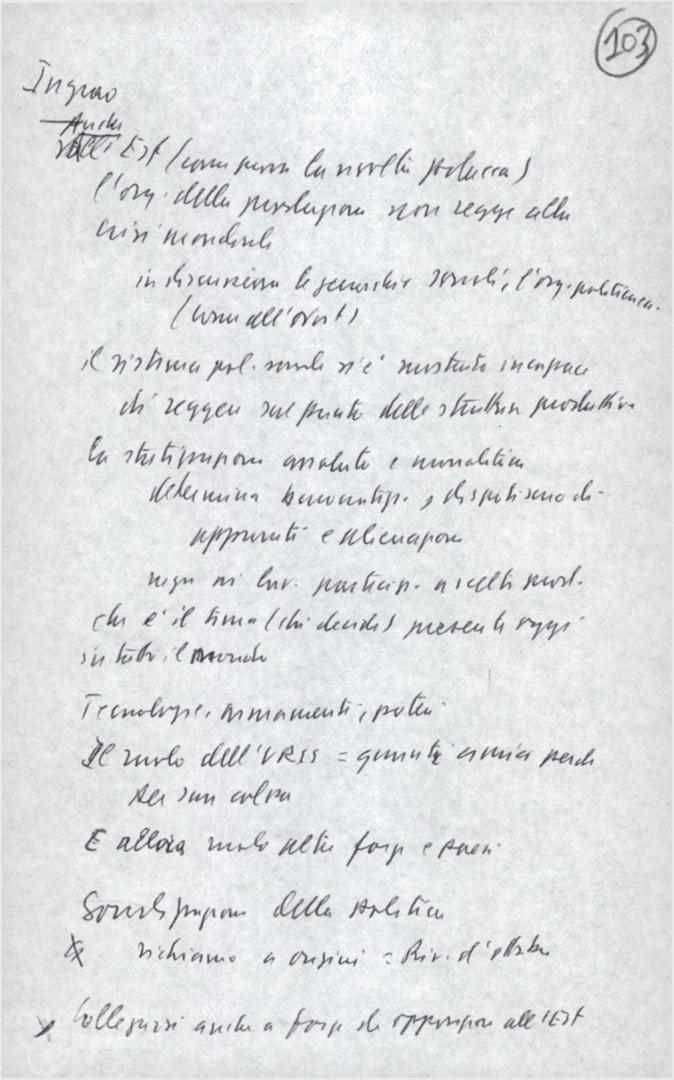 103
Ingrao
Anche
all'Est (come prova la rivolta polacca)
l'org. della produzione non regge alla
crisi mondiale
in discussione le gerarchie sociali, l'org. politica
(come all'ovest)
il sistema pol. sociale si è mostrato incapace
di reggere sul piano delle strutture produttive
la statizzazione assoluta e monolitica
determina burocratizz. e dispotismo di
apparati e alienazione
nega ai lav. partecip. a scelte prod.
che è il tema (chi decide) presente oggi
in tutto il mondo
Tecnologie, armamenti, poteri
Il ruolo dell'URSS = quanti anni perde
per sua colpa
E allora ruolo altre forze e paesi
Socializzazione della politica
x richiamo a origini = Riv. d'ottobre
x Collegarsi anche a forze di opposizione all'Est